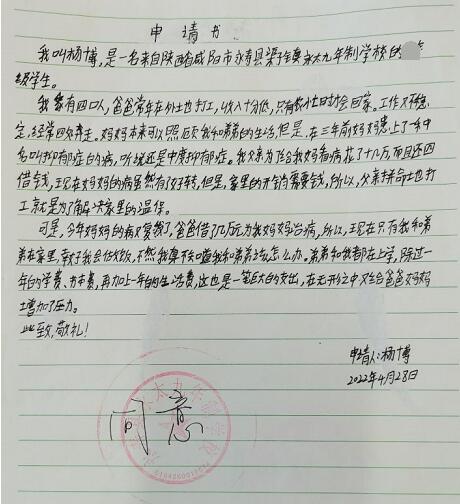 申请书
我叫杨博,是一名来自陕西省咸阳市永寿县渠子镇永太九年制学校的
级学生。
我家有四口人,爸爸常年在外地打工,收入十分低,只有 时才会回家。工作不稳
定,经常四处奔走。妈妈本来可以照顾我和弟弟的生活,但是,在三年前妈妈患上了一种
名叫抑郁症的病,听说还是中度抑郁症。我父亲为了给我妈看病花了十几万,而且还四
借钱,现在妈妈的病虽然有了好转,但是,家里的开销需要钱,所以,父亲拼命地打
工就是为了解决家里的温保。
可是,今年妈妈的病又复发了,爸爸借了几万元为我妈妈治病,所以,现在只有我和弟
弟在家里,幸好我会做饭,不然我真不知道我和弟弟该怎么办。弟弟和我都在上学,除过一
年的学费、书本费,再加上一年的生活费,这也是一笔巨大的支出,在无形之中又给爸爸妈妈
增加了压力。
此致,敬礼!
申请人:杨博
2022年4月28日
同意
太九年制学校